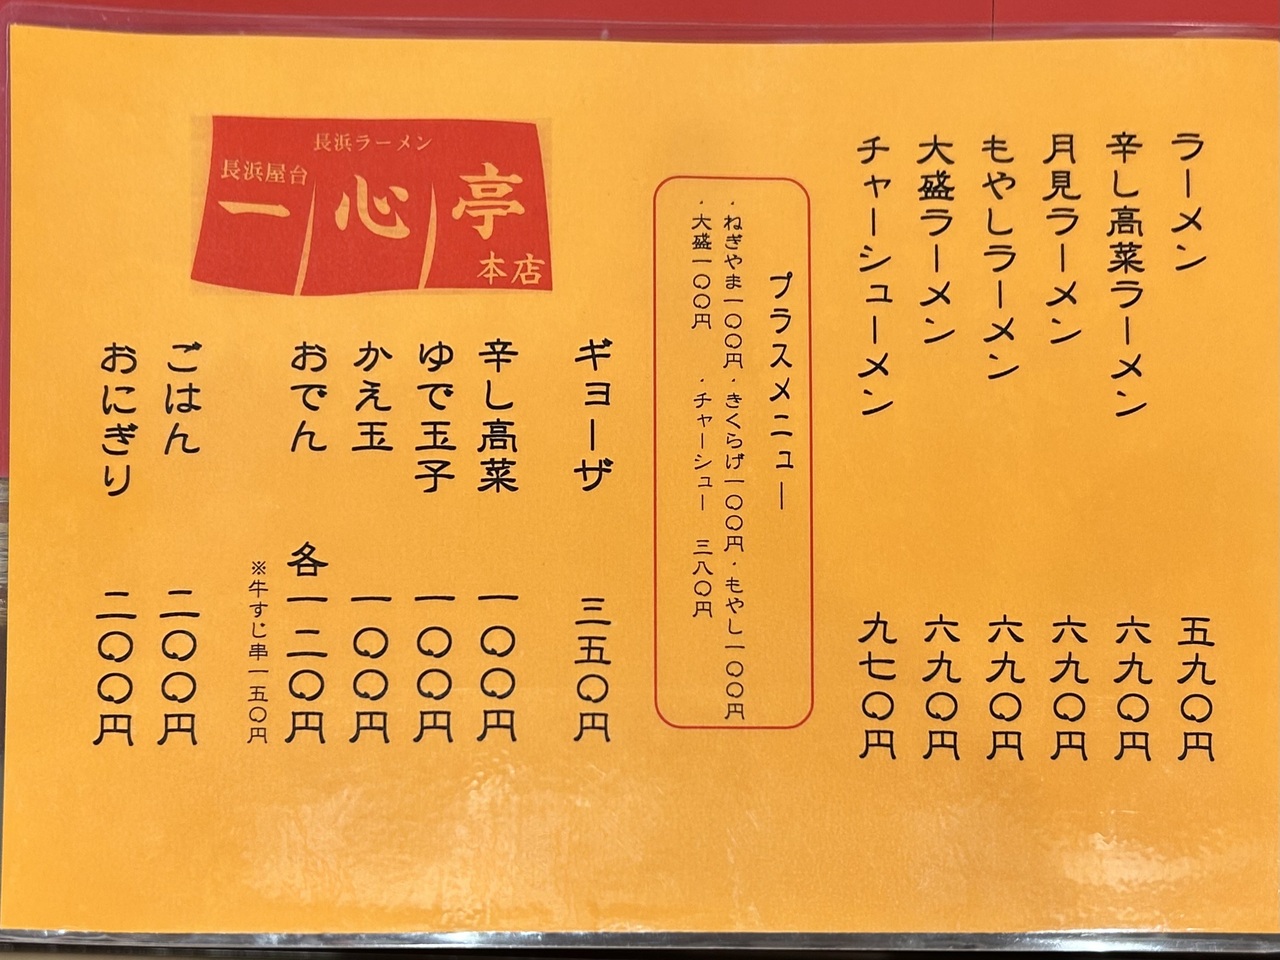 ラーメン 五九〇円
辛し高菜ラーメン 六九〇円
月見ラーメン 六九〇円
もやしラーメン 六九〇円
大盛ラーメン 六九〇円
チャーシューメン 九七〇円
プラスメニュー
・ねぎやま一〇〇円・きくらげ一〇〇円・もやし一〇〇円
・大盛一〇〇円 ・チャーシュー 三八〇円
長浜ラーメン
長浜屋台
一心亭
本店
ギョーザ 三五〇円
辛し高菜 一〇〇円
ゆで玉子 一〇〇円
かえ玉 一〇〇円
おでん 各一二〇円
※牛すじ串一五〇円
ごはん 二〇〇円
おにぎり 二〇〇円